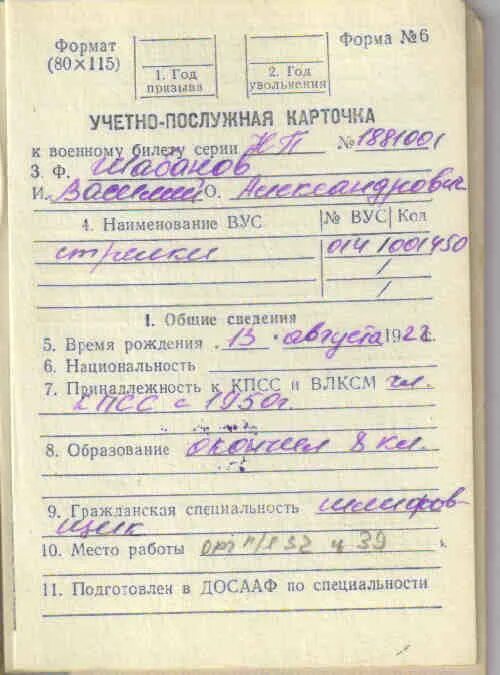 Формат
(80×115)
1. Год
призыва
2. Год
увольнения
Форма №6
УЧЕТНО-ПОСЛУЖНАЯ КАРТОЧКА
к военному билету серии НП №1881001
3. Ф. Шабанов
И. Василий О. Александрович
4. Наименование ВУС № ВУС Код
стрелки 014 1001450
/
/
1. Общие сведения
5. Время рождения 13 августа 192 г.
6. Национальность
7. Принадлежность к КПСС и ВЛКСМ чл.
КПСС с 1950г.
8. Образование окончил 8 кл.
9. Гражданская специальность шлифов-
щик
10. Место работы п/я 32 ц 39
11. Подготовлен в ДОСААФ по специальности